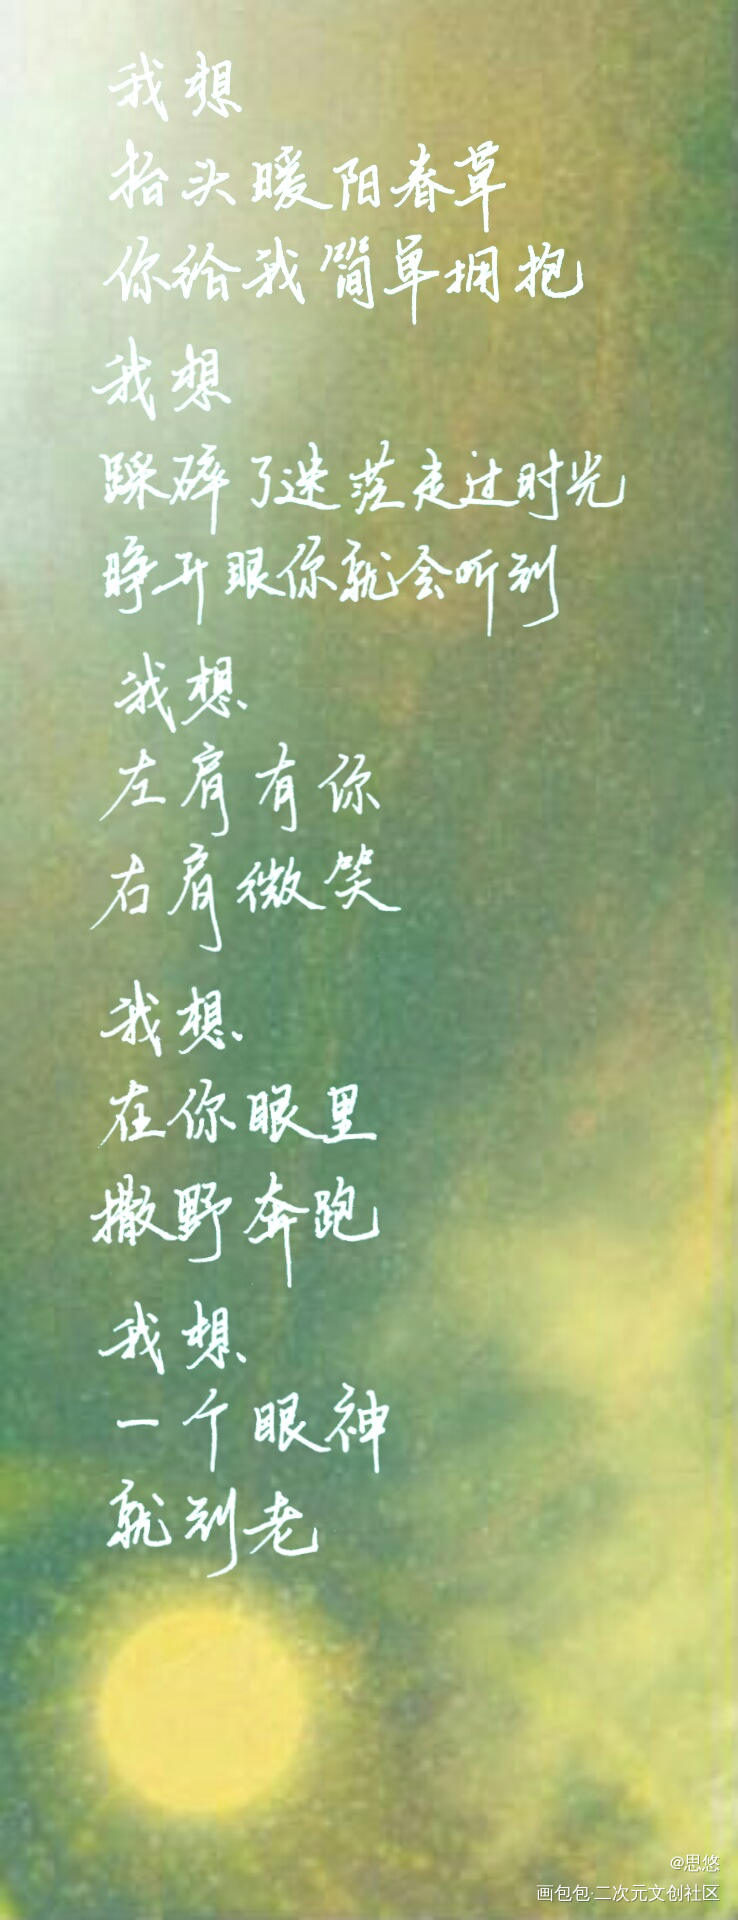 我想
抬头暖阳春草
你给我简单拥抱
我想
踩碎了迷茫走过时光
睁开眼你就会听到
我想
左肩有你
右肩微笑
我想
在你眼里
撒野奔跑
我想
一个眼神
就到老
@思悠
画包包·二次元文创社区